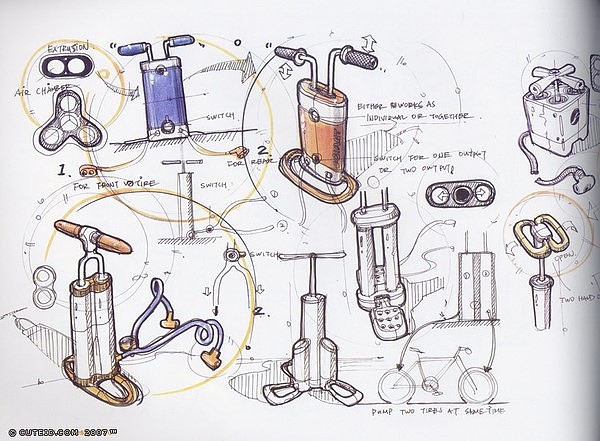 EXTRUSION
AIR CHAMBER
SWITCH
1.
2.
FOR FRONT TIRE
FOR REAR.
SWITCH
EITHER WORKS AS
INDIVIDUAL OR TOGETHER.
SWITCH FOR ONE OUTPUT
OR TWO OUTPUT
SWITCH
2.
OPEN.
TWO HAND
PUMP TWO TIRES AT SAME TIME
© CUTEID.COM 2007™